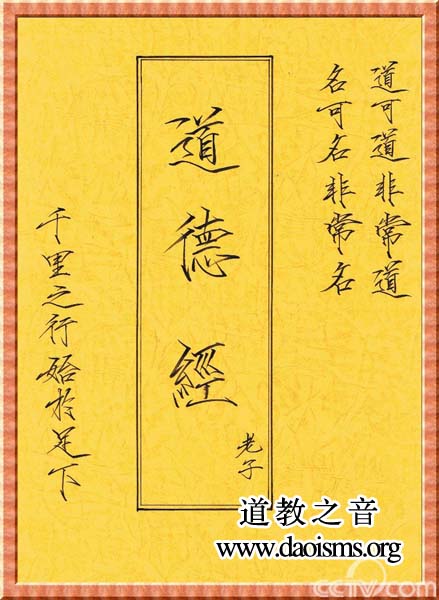 道可道非常道
名可名非常名
道德經
老子
千里之行始於足下
道教之音
www.daoisms.org
cctv.com